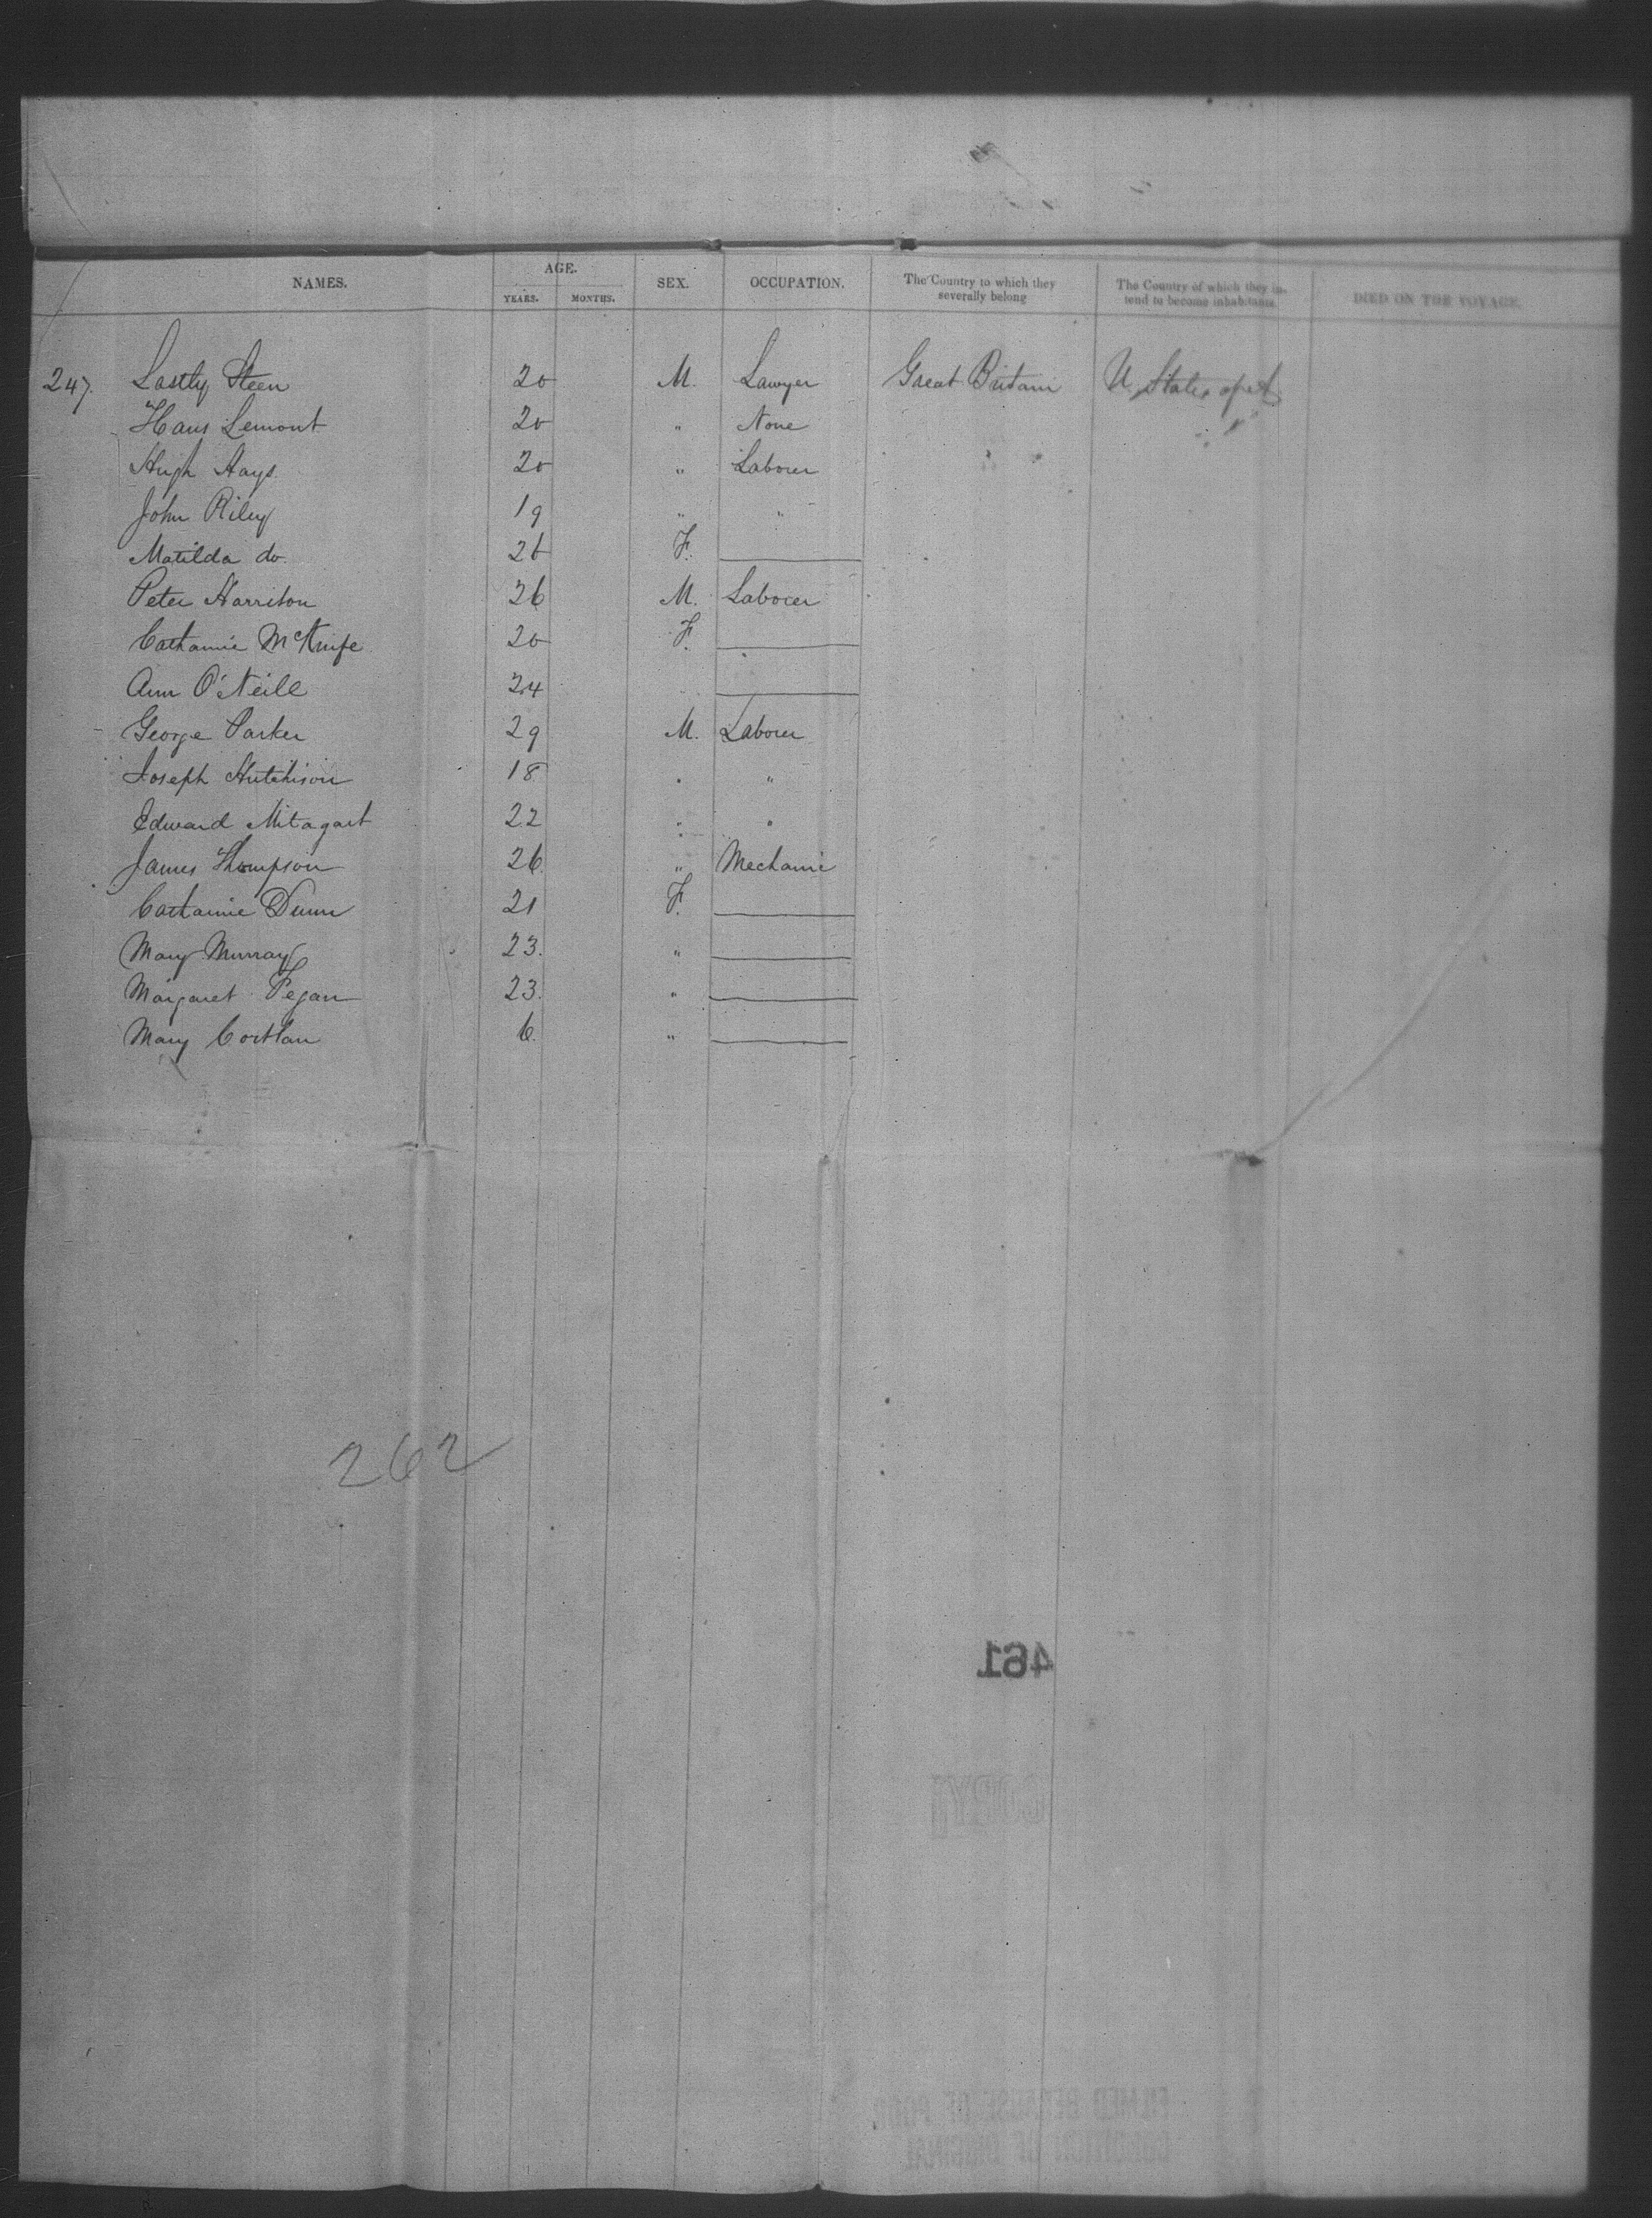 NAMES. AGE. YEARS. MONTHS. SEX. OCCUPATION. The Country to which they severally belong The Country of which they intend to become inhabitants DIED ON THE VOYAGE.
247. Lastly Steen 20 M. Lawyer Great Britain U. States of A
Hans Lemont 20 " None
Hugh Hays 20 " Laborer
John Riley 19 " "
Matilda do. 26 F.
Peter Harrison 26 M. Laborer
Catharine McKnife 20 F.
Ann O'Neill 24
George Parker 29 M. Laborer
Joseph Hutchison 18 " "
Edward Mitagart 22 " "
James Thompson 26 " Mechanic
Catharine Dunn 21 F.
Mary Murray 23. "
Margaret Fegan 23. "
Mary Cortlan 6. "
262
461
COPY
FILMED BECAUSE OF POOR
CONDITION OF ORIGINAL